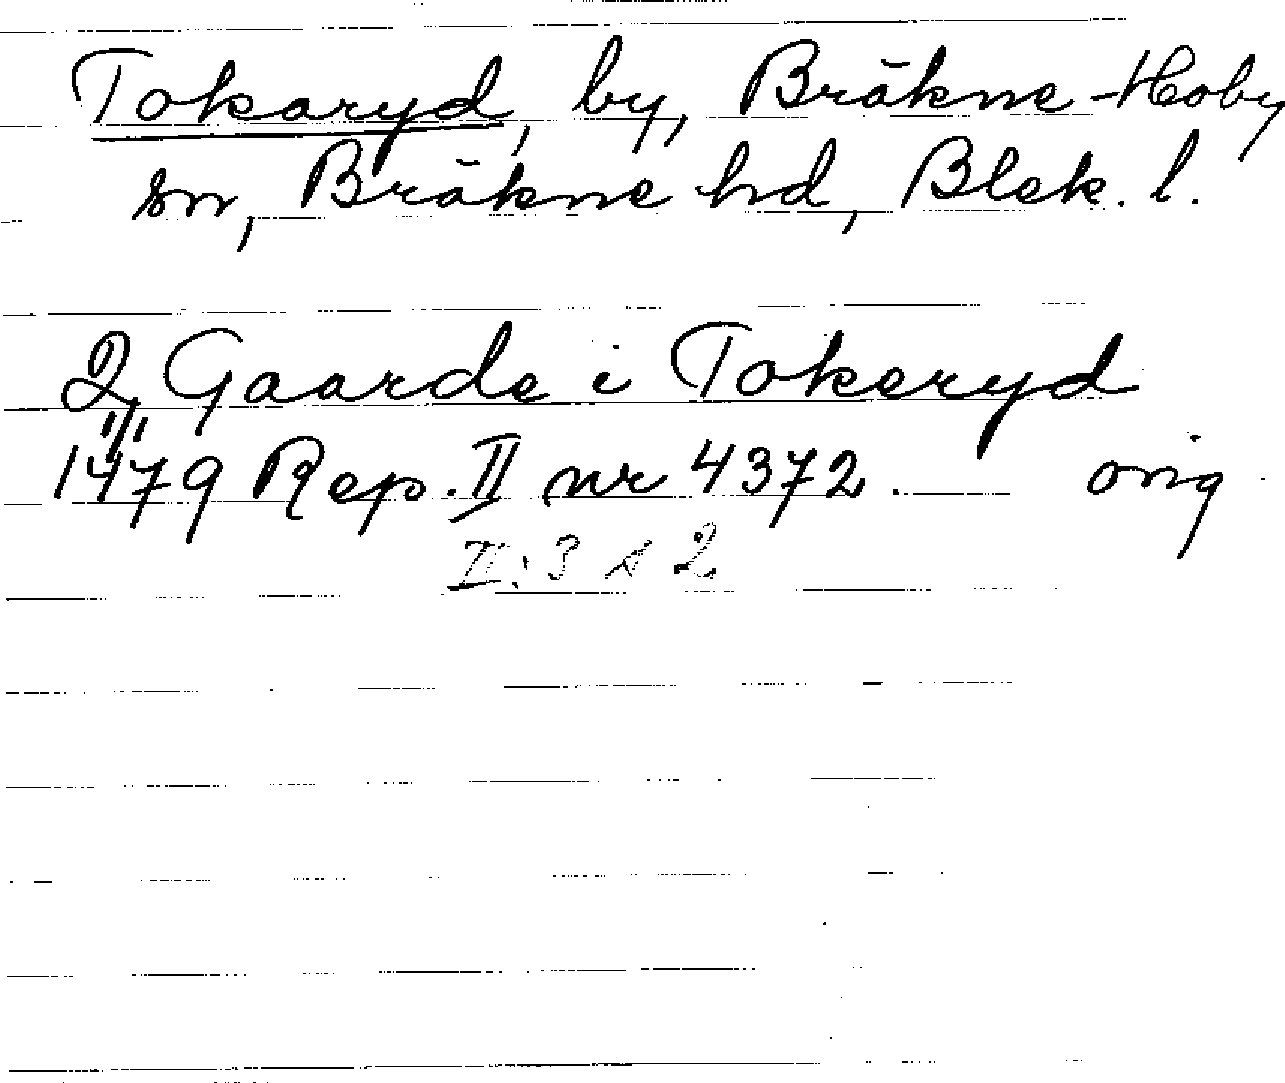 Tokaryd, by, Bräkne-Hoby
sn, Bräkne hd, Blek. l.
2 Gaarde i Tokeryd
1/1
1479 Rep. II nr 4372. orig
II:3 s 2